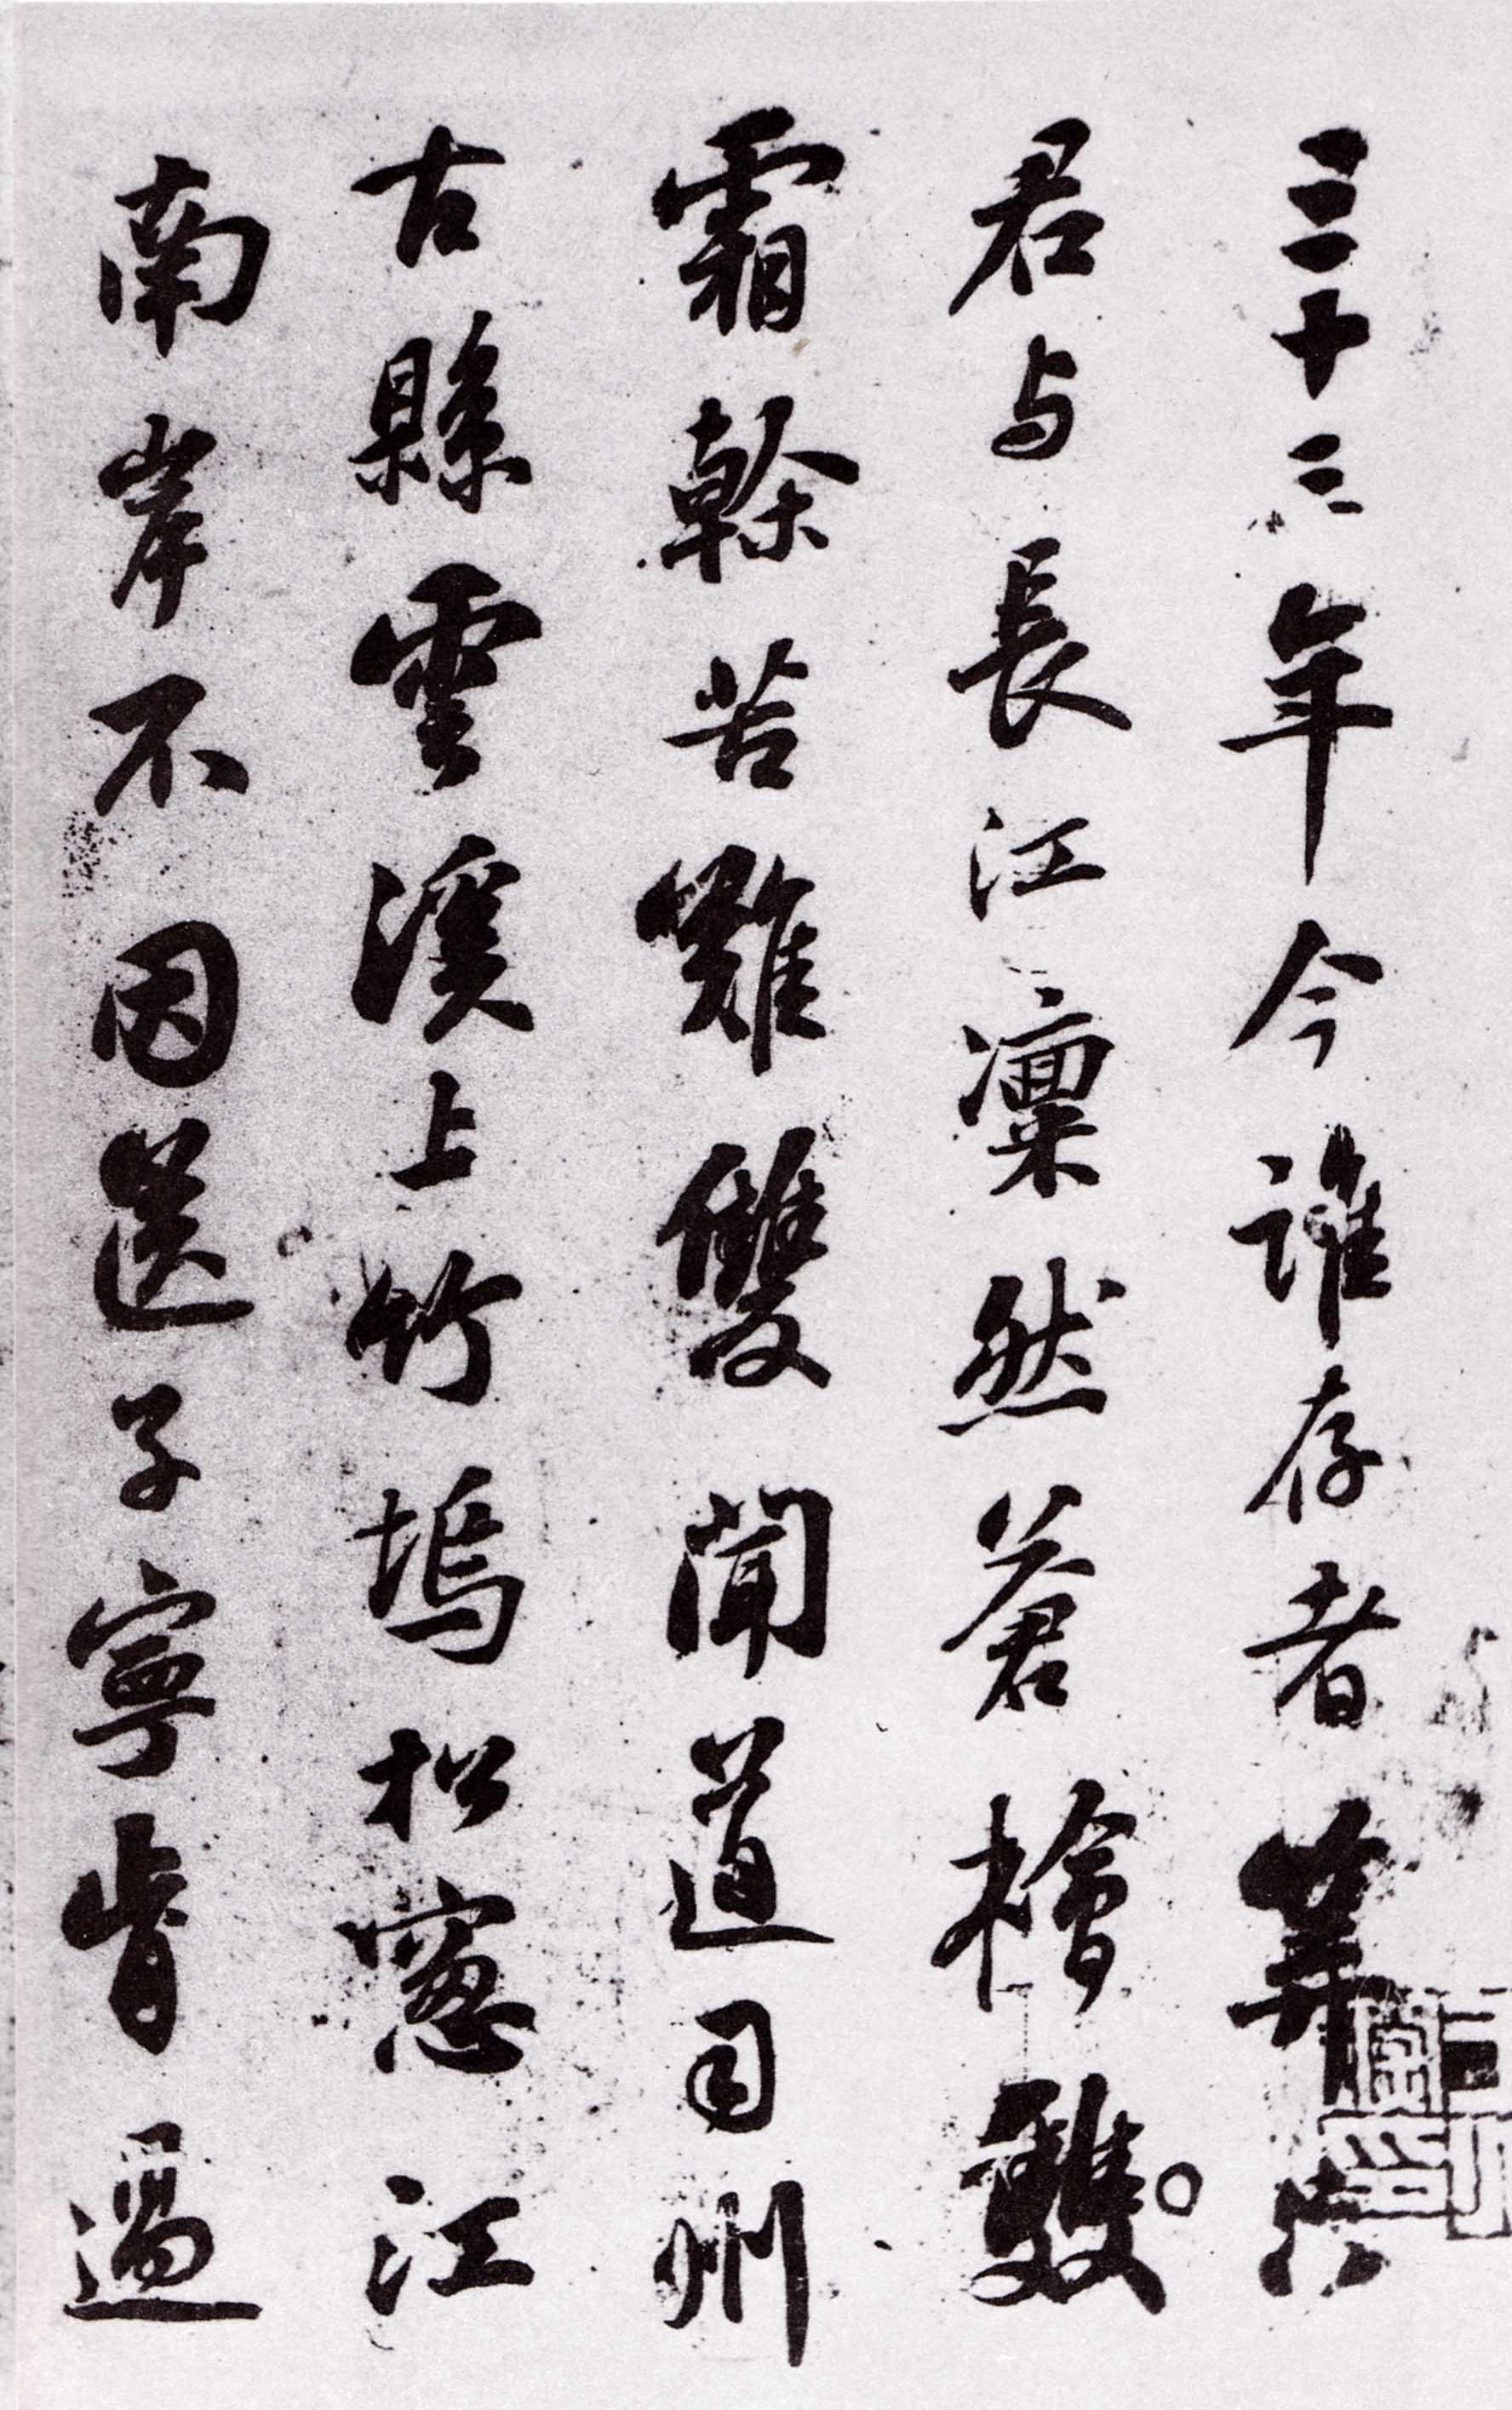 三十三年今誰存者筭只
君与長江凜然蒼檜雙
霜榦苦難雙聞道司州
古縣雲溪上竹塢松窻江
南岸不因送子寧肯過